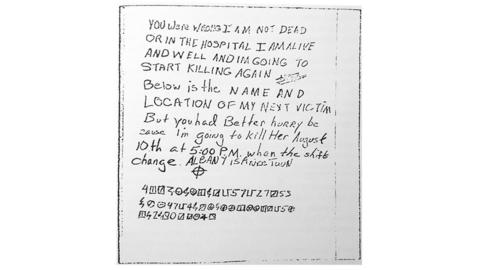 YOU WERE WRONG I AM NOT DEAD
OR IN THE HOSPITAL I AM ALIVE
AND WELL AND IM GOING TO
START KILLING AGAIN
Below is the NAME AND
LOCATION OF MY NEXT VICTIM
But you had Better hurry be
cause I'm going to kill Her August
10th at 5:00 P.M. when the shift
change. ALBANY IS A NICE TOWN